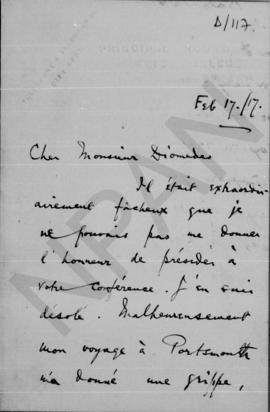 D/117.
Feb 17./17.
Cher Monsieur Diomedes
Il était extraordin-
airement fâcheux que je
ne pouvais pas me donner
l'honneur de présider à
votre conférence. J'en suis
désolé. Malheureusement
mon voyage à Portsmouth
m'a donné une grippe,